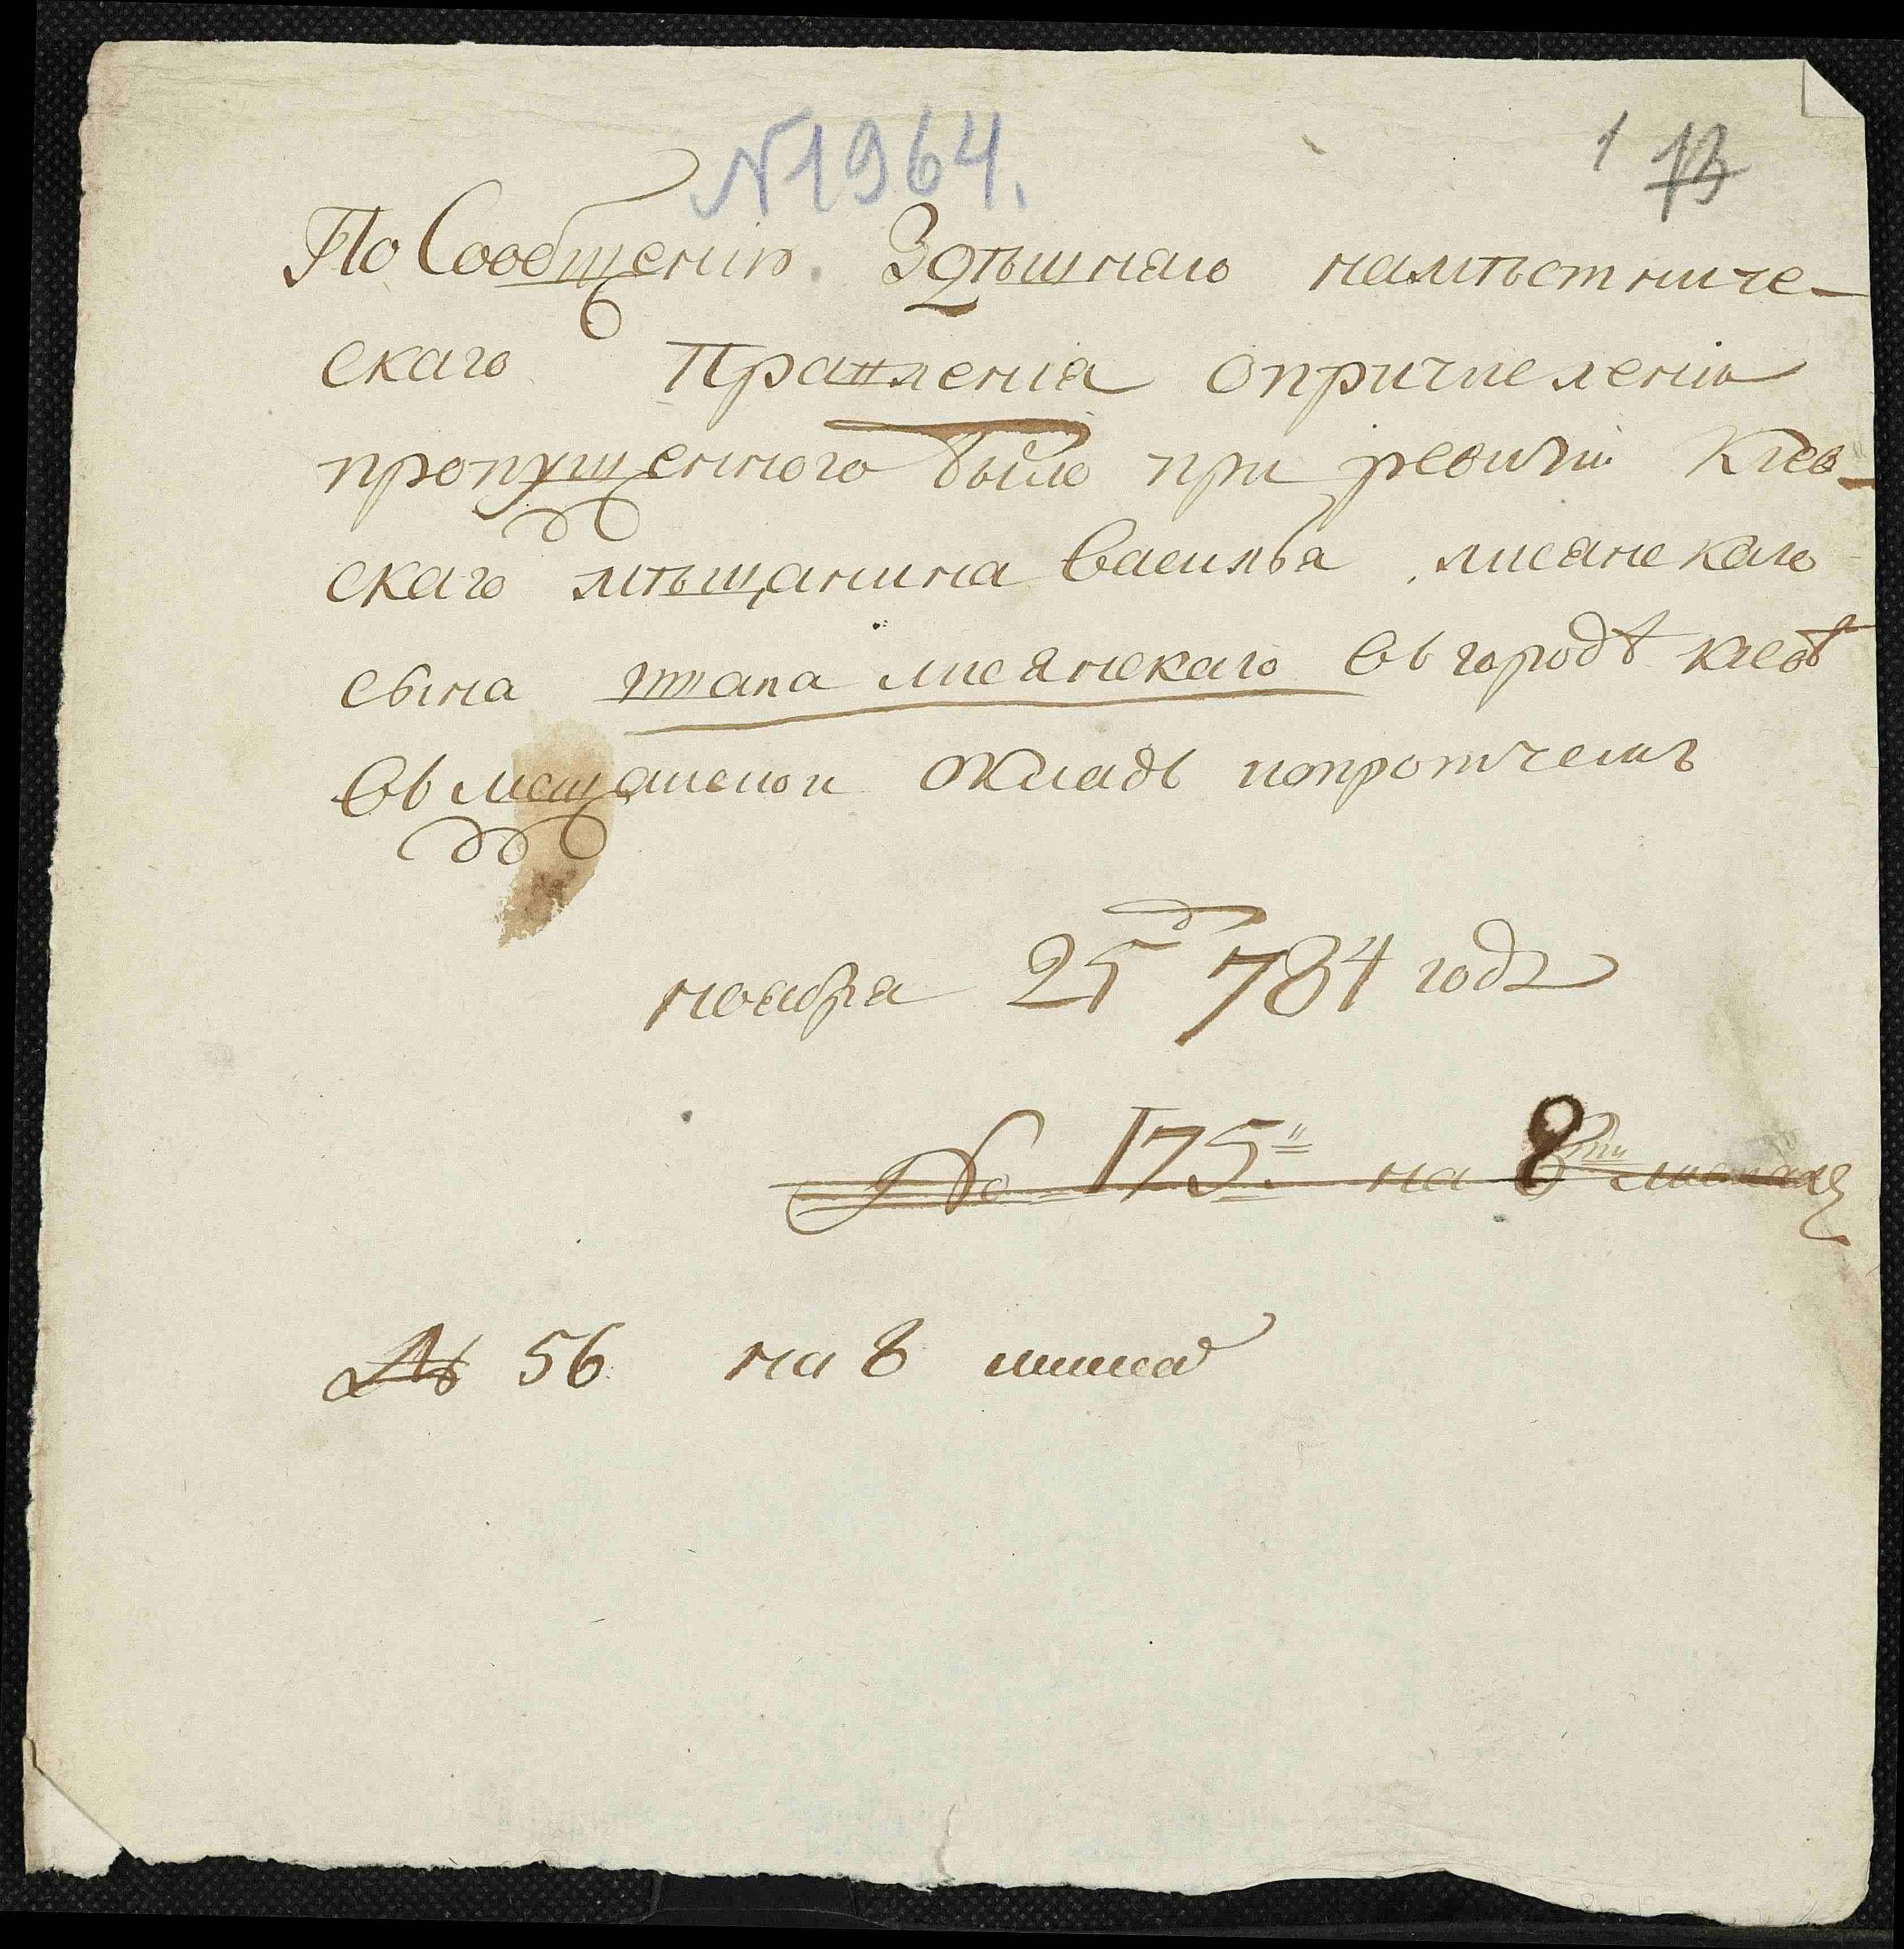 № 1964.
1 13
По Сообщению Здѣшнаго намѣстниче-
скаго Правленія опричисленіи
пропущенного было при ревизіи Киев-
скаго мѣщанина Василья лисянскаго
сына лисянскаго въ городѣ киевѣ
въ мещанской окладъ и опротчемъ
ноября 25 д 784 года
№ 175 на 8ми листахъ
№ 56 на 8 листа